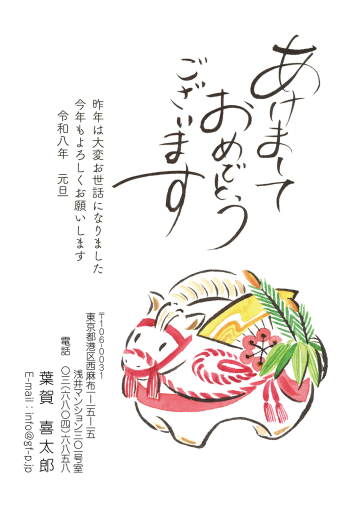 あけまして
おめでとう
ございます
昨年は大変お世話になりました
今年もよろしくお願いします
令和八年　元旦
〒106-0031
東京都港区西麻布一一五一五
浅井マンション三〇一号室
電話　〇三(六八〇四)六八五八
葉賀　喜太郎
E-mail : info@gf-p.jp